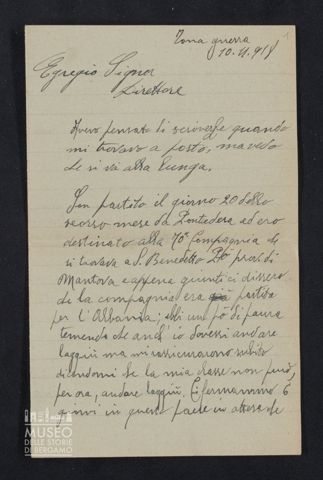 Zona guerra 1
10.11.918
Egregio Signor
Direttore
Avevo pensato di scriverle quando
mi trovavo a posto, ma vedo
che si va alla lunga.
Son partito il giorno 20 dello
scorso mese da Pontedera ed ero
destinato alla 70ª Compagnia che
si trovava a S. Benedetto Pò prov. di
Mantova e appena giunti ci dissero
che la compagnia era già partita
per l'Albania; ebbi un pò di paura
temendo che anch'io dovessi andare
laggiù ma mi assicurarono subito
dicendomi che la mia classe non può,
per ora, andare laggiù. Ci fermammo 6
giorni in questo paese in attesa che
MUSEO
DELLE STORIE
DI BERGAMO